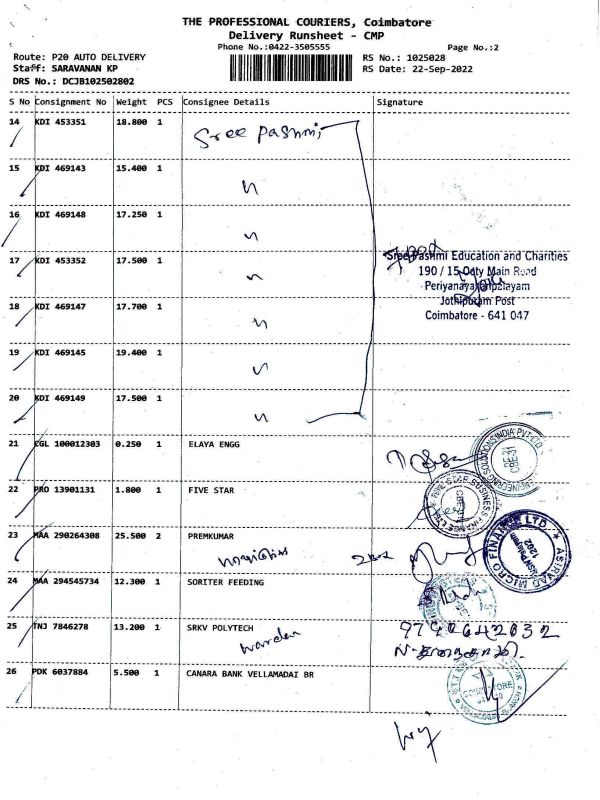 THE PROFESSIONAL COURIERS, Coimbatore
Delivery Runsheet - CMP
Phone No.:0422-3505555 Page No.:2
Route: P20 AUTO DELIVERY RS No.: 1025028
Staff: SARAVANAN KP RS Date: 22-Sep-2022
DRS No.: DCJB102502802
S No Consignment No Weight PCS Consignee Details Signature
14 KDI 453351 18.800 1 Sree Pashmi
15 KDI 469143 15.400 1
16 KDI 469148 17.250 1
17 KDI 453352 17.500 1
18 KDI 469147 17.700 1
19 KDI 469145 19.400 1
20 KDI 469149 17.500 1
Education and Charities
Main Road
Post
Coimbatore - 641 047
21 CGL 100012303 0.250 1 ELAYA ENGG
22 PRO 13901131 1.800 1 FIVE STAR
23 MAA 290264308 25.500 2 PREMKUMAR
24 MAA 294545734 12.300 1 SORITER FEEDING
ASIRVAD MICRO FINANCE LTD
25 TNJ 7846278 13.200 1 SRKV POLYTECH
warden
26 PDK 6037884 5.500 1 CANARA BANK VELLAMADAI BR